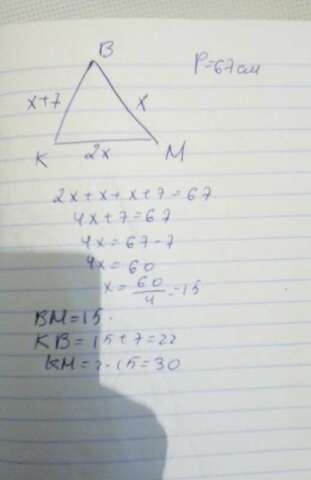 B
P=67см
x+7
x
K
2x
M
2x+x+x+7=67
4x+7=67
4x=67-7
4x=60
x=60/4=15
BM=15.
KB=15+7=22
KM=2·15=30